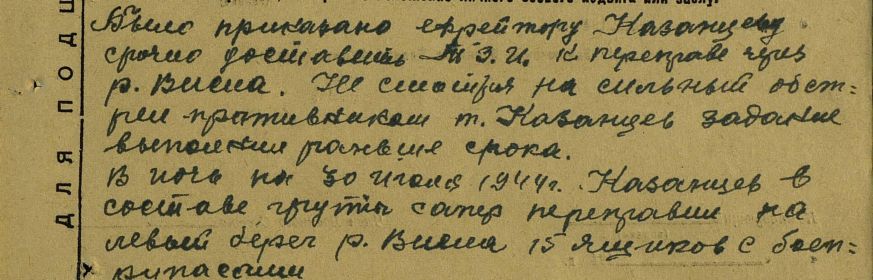 Было приказано ефрейтору Казанцеву
срочно доставить Т З.И. к переправе через
р. Висла. Не смотря на сильный обст=
рел противником т. Казанцев задание
выполнил раньше срока.
В ночь на 30 июля 1944г. Казанцев в
составе группы сапер переправил на
левый берег р. Висла 15 ящиков с боеп=
рипасами
ДЛЯ ПОДШ